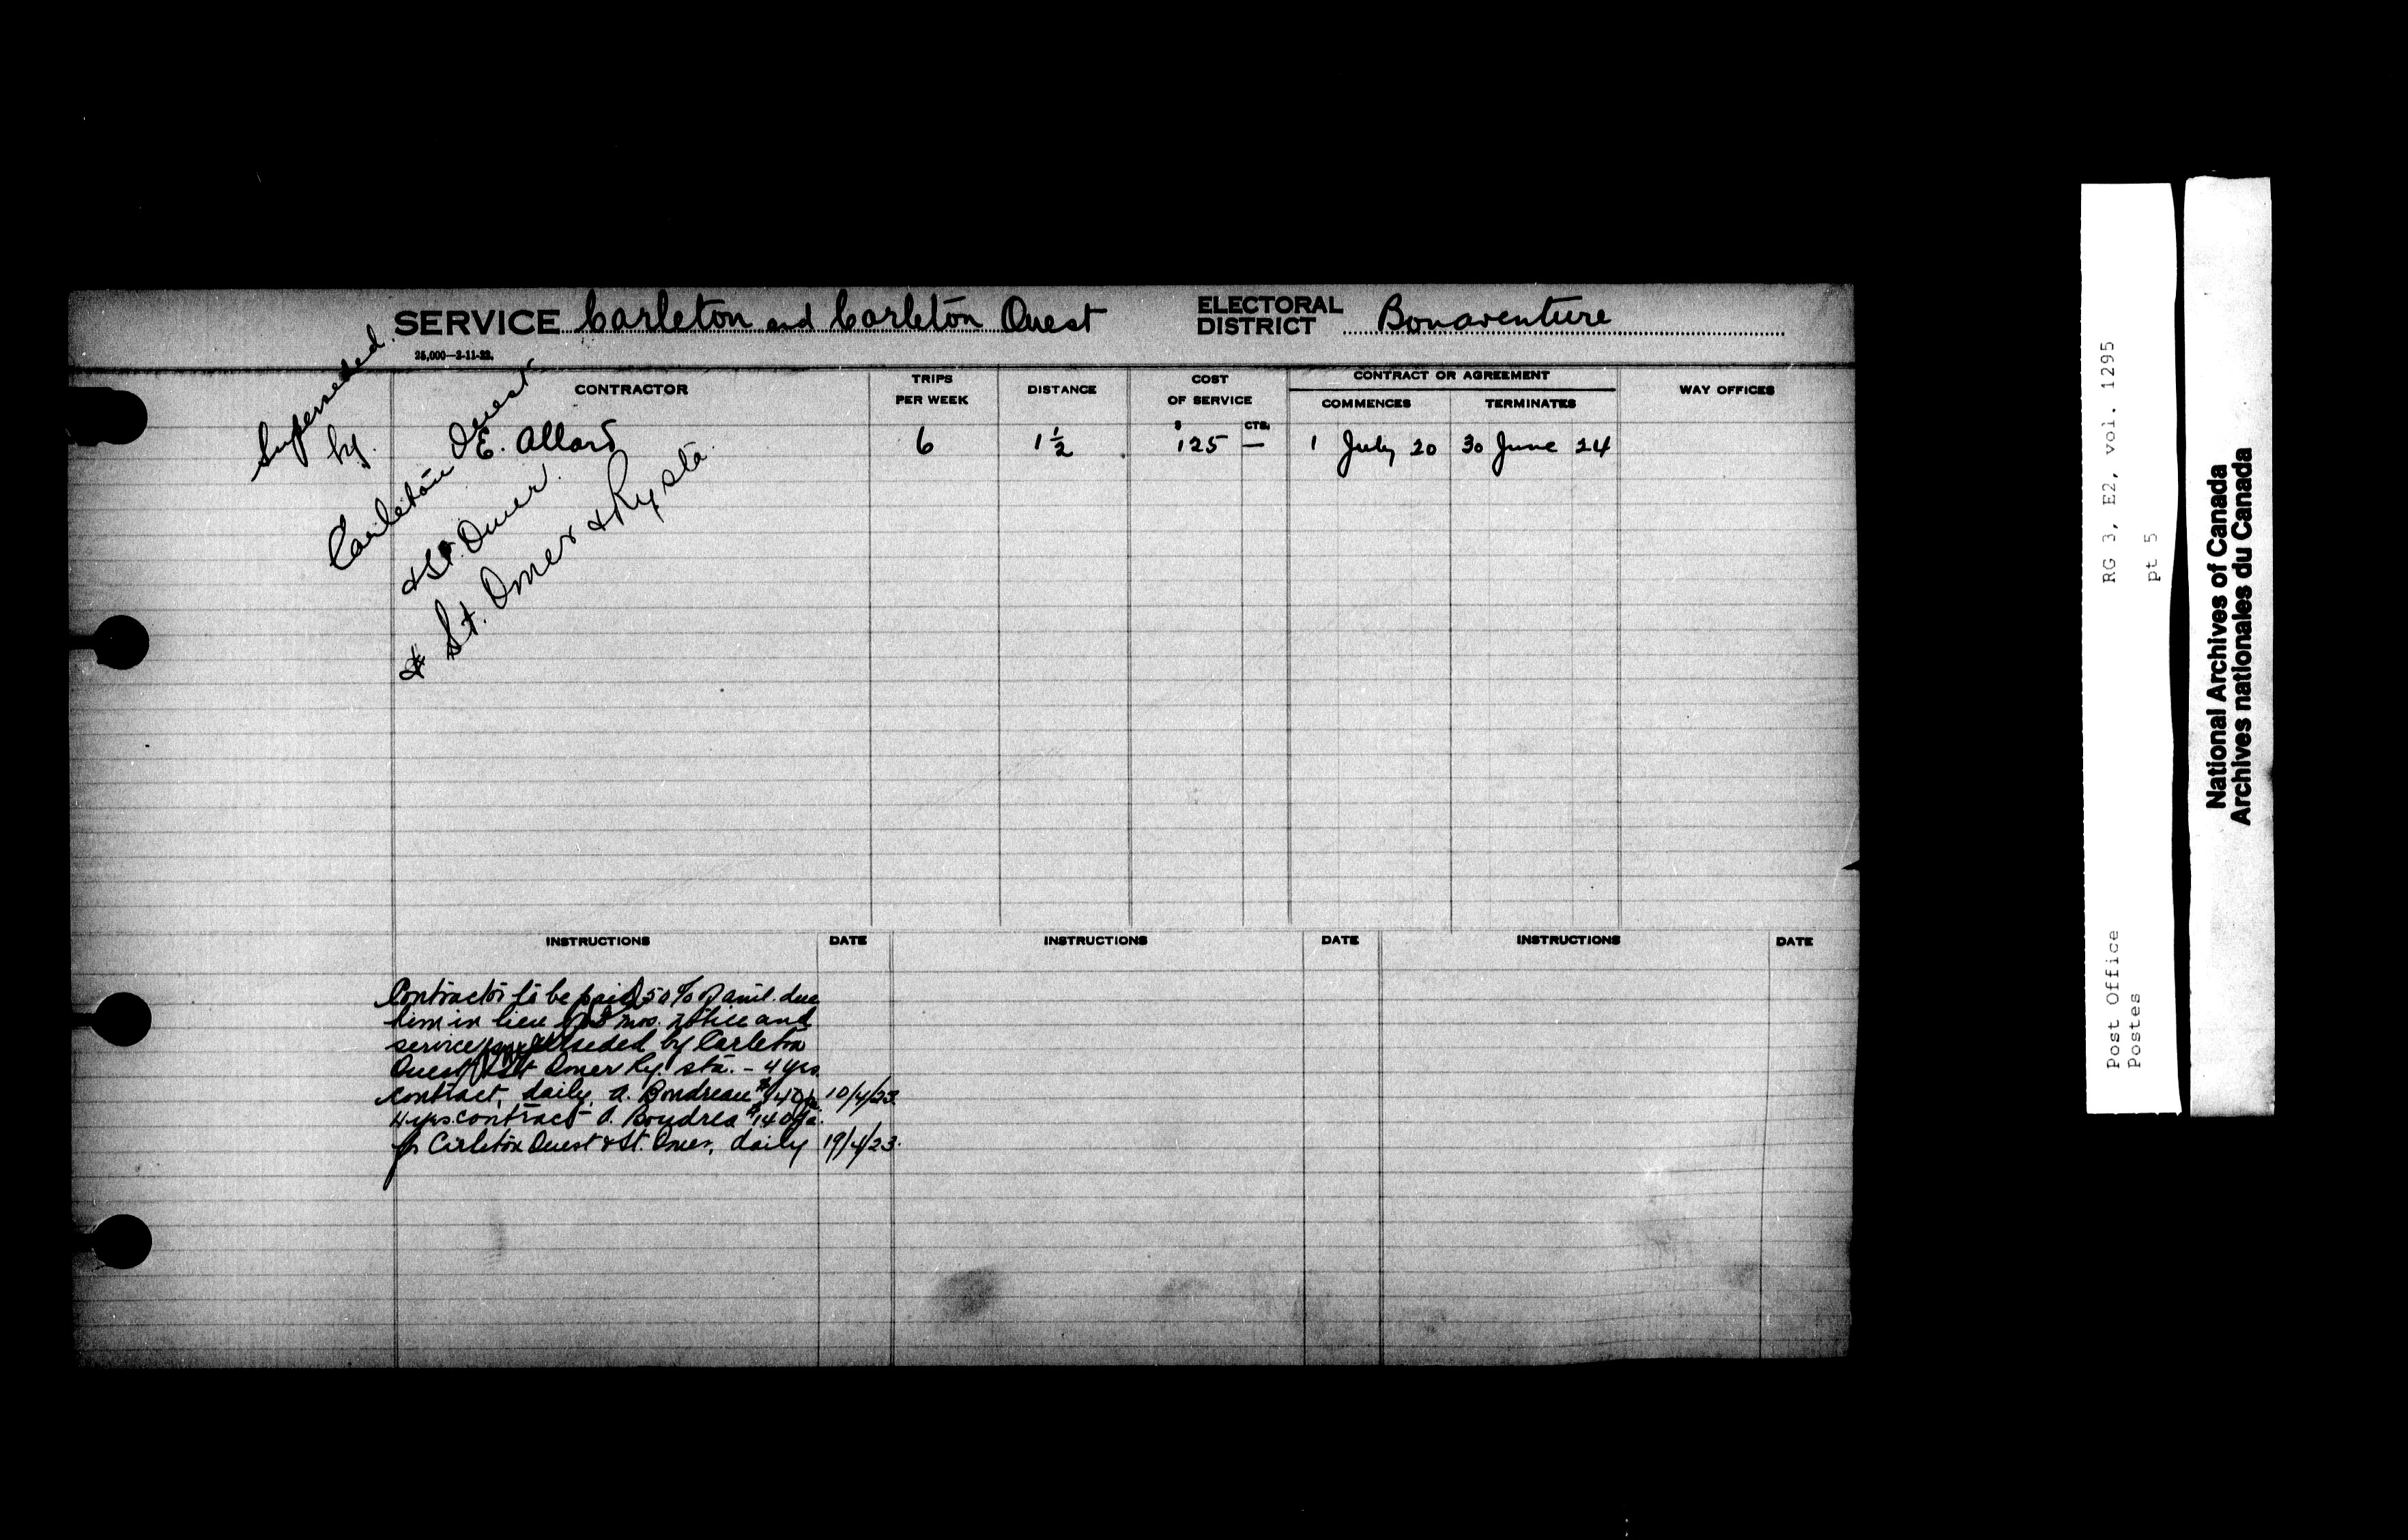 SERVICE Carleton and Carleton Ouest
ELECTORAL DISTRICT Bonaventure
25,000—2-11-22.
Superseded
by
Carleton Ouest
& St. Omer.
& St. Omer & Ry sta.
CONTRACTOR
TRIPS PER WEEK
DISTANCE
COST OF SERVICE
CONTRACT OR AGREEMENT
COMMENCES
TERMINATES
WAY OFFICES
$ CTS.
E. Allard 6 1 1/2 125 — 1 July 20 30 June 24
INSTRUCTIONS DATE INSTRUCTIONS DATE INSTRUCTIONS DATE
Contractor to be paid 50% of amt. due
him in lieu of 3 mos. notice and
service superseded by Carleton
Ouest & St Omer Ry. sta. - 4 yrs
contract, daily, A. Boudreau $140 10/4/23.
4 yrs. contract A. Boudrea $140 pa.
for Carleton Ouest & St. Omer, daily 19/4/23.
RG 3, E2, vol. 1295
pt 5
Post Office
Postes
National Archives of Canada
Archives nationales du Canada